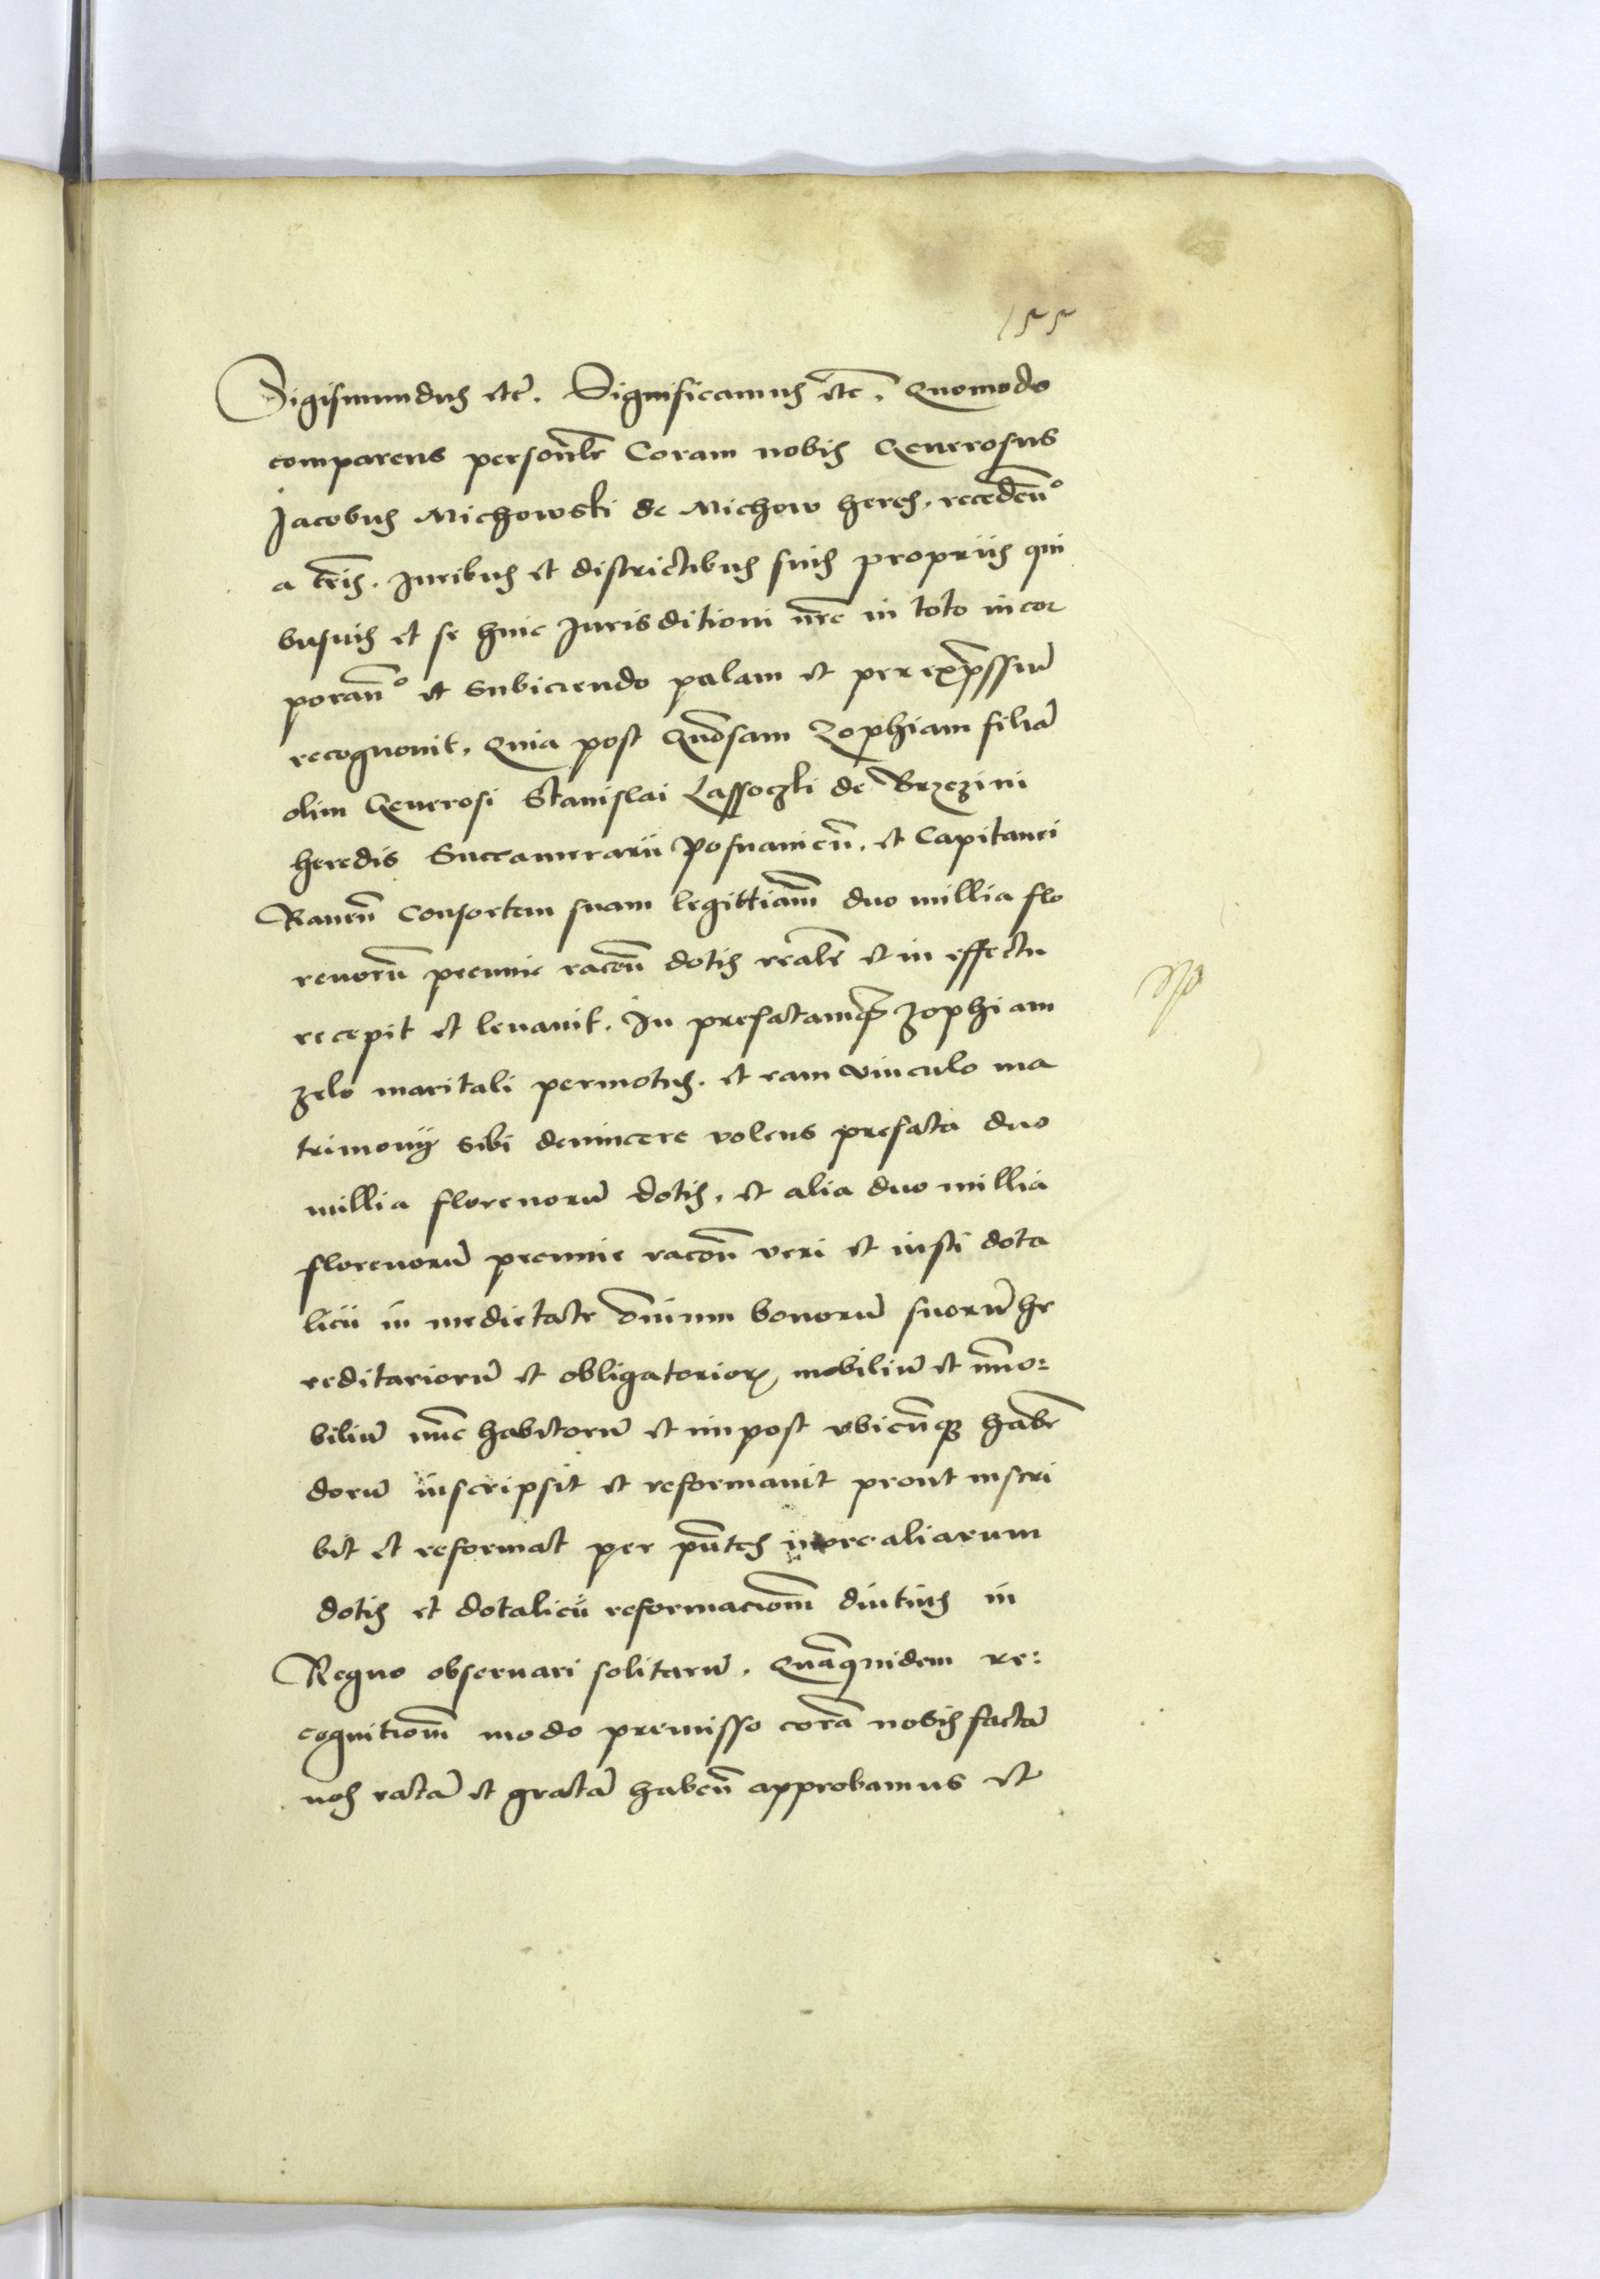 155
Sigismundus etc̄. Significamus etc̄. Quomodo
comparens personl̄r Coram nobis Generosus
Jacobus Michowski de Michow heres. recedeñ°
a tr̄is. Juribus et districtibus suis propriis qui
busuis et se huic Jurisditioni nr̄e in toto incor
porañ° et subiciendo palam et per exp̄ssum̄
recognouit. Quia post Gn̄osam Zophiam filiā
olim Generosi Stanislai Lassoczki de Brzezini
heredis Succamerarii Posnanieñ. et Capitanei
Raueñ Consortem suam legittiam̄ duo millia flo
renorū pecunie racoñ dotis realr̄ et in effectu
recepit et leuauit. In prefatamq̄ Zophiam
zelo maritali permotus. et eam vinculo ma
trimonij sibi deuincere volens prefata duo
millia florenorū dotis. et alia duo millia
florenorū pecunie racoñ veri et iusti dota
licii in medietate om̄ium bonorū suorū he
reditariorū et obligatorioꝝ mobiliū et im̄o:
biliū nūc habitorū et inpost vbicūq̨ habē
dorū inscripsit et reformauit prout inscri
bit et reformat per pn̄tes more aliarum
dotis et dotalicii reformaciom̄ diutius in
Regno obseruari solitarū. Quāquidem re:
cognitiom̄ modo premisso corā nobis factā
nos ratā et gratā habeñ approbamus et